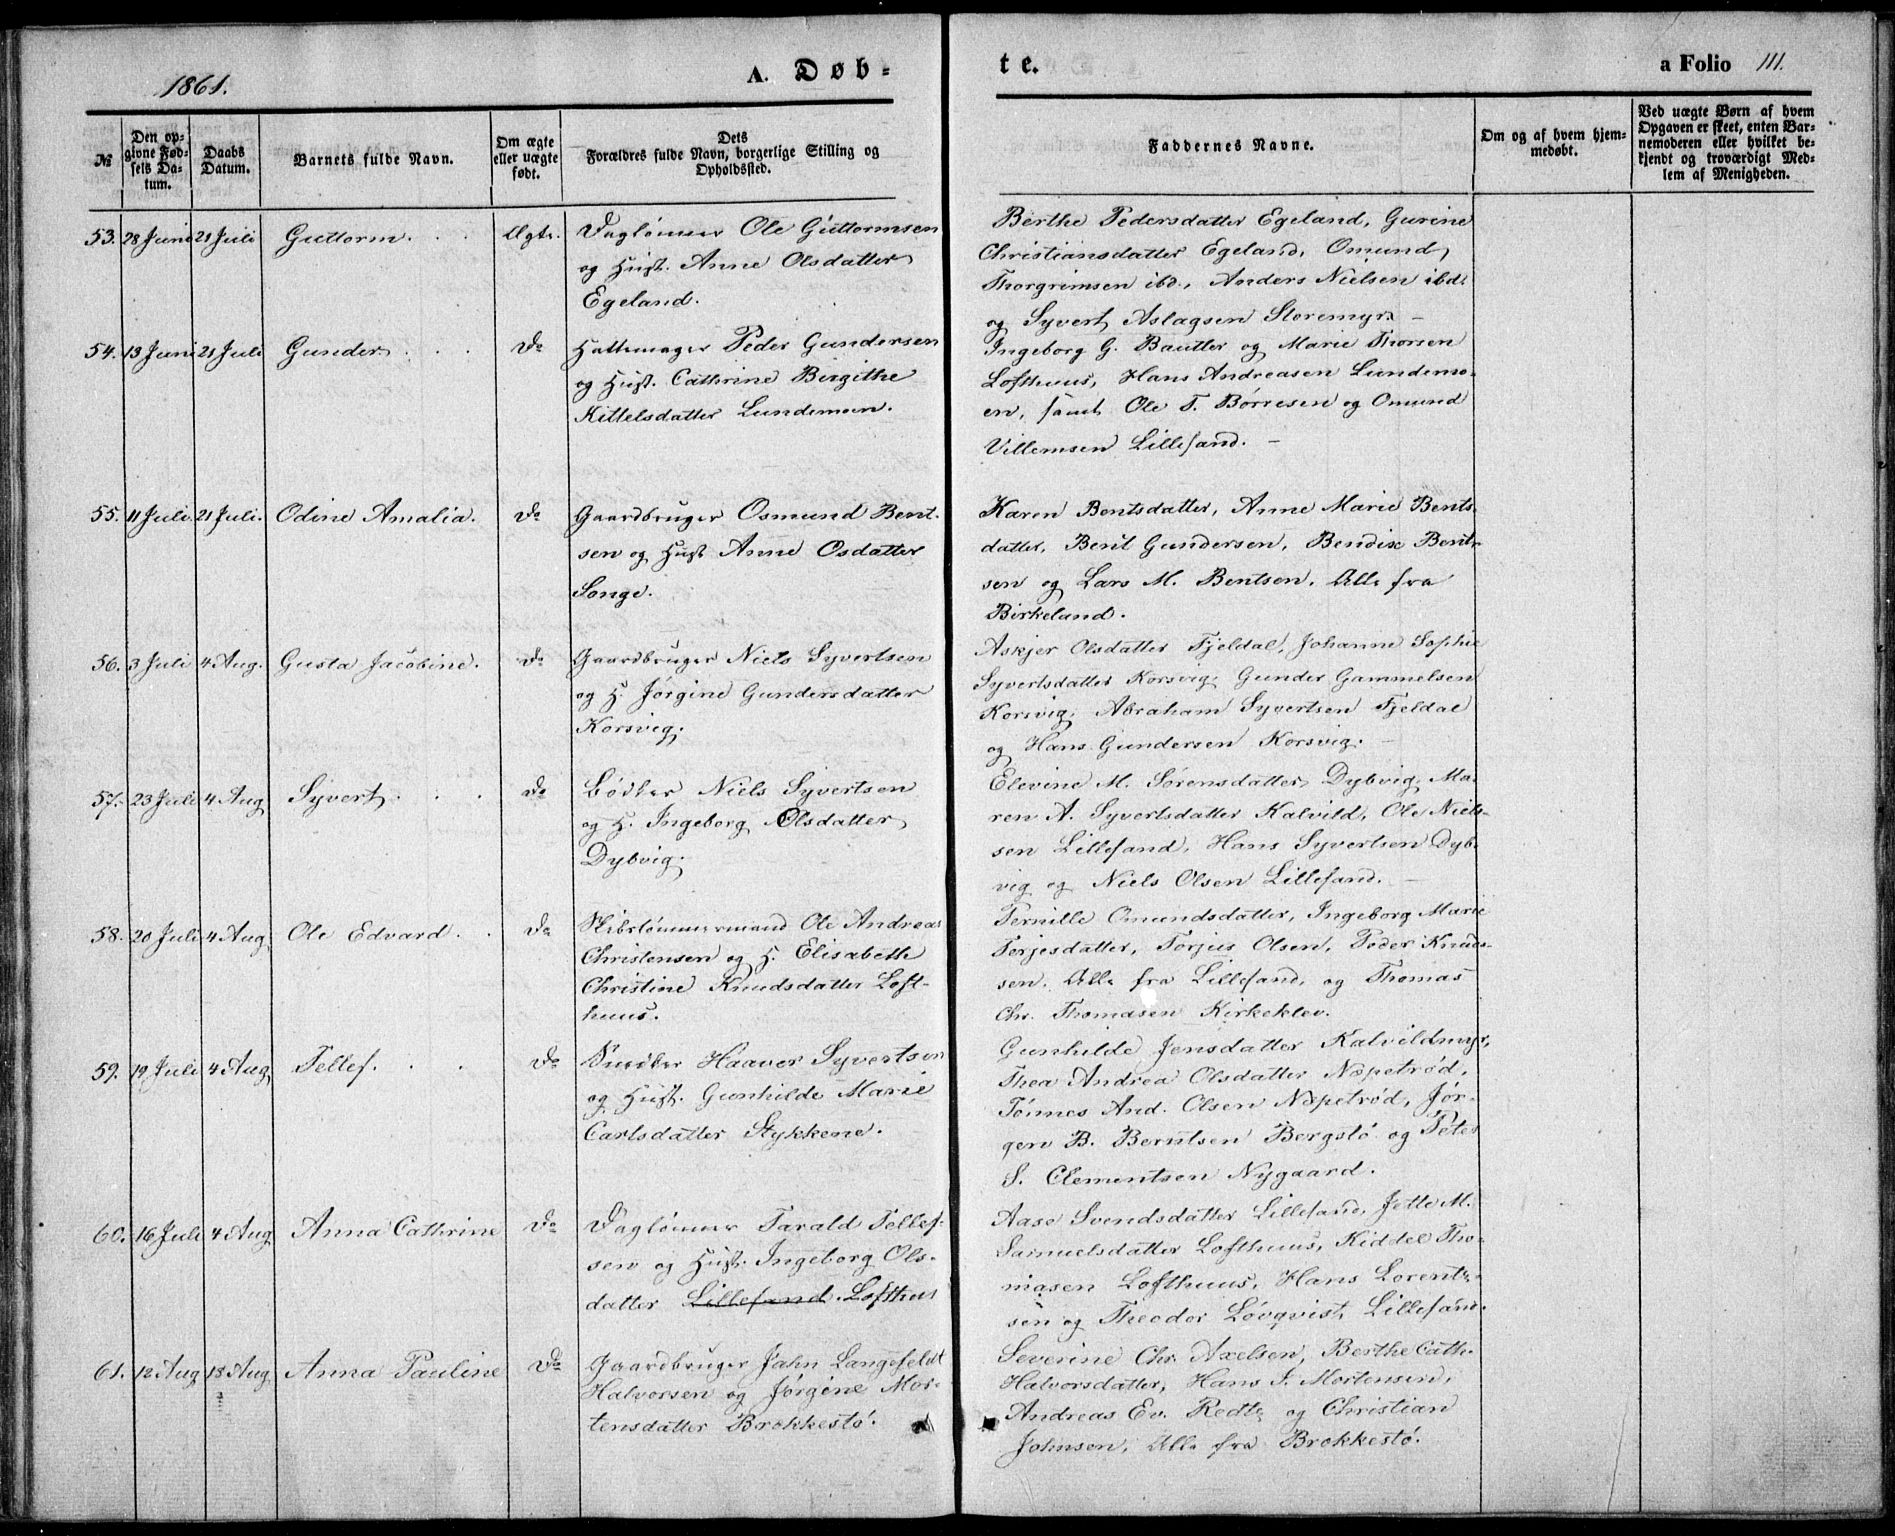 1861.
A. Døb-
te.
a Folio 111.
№
Den op-
givne Fød-
sels Da-
tum.
Daabs
Datum.
Barnets fulde Navn.
Om ægte
eller uægte
født.
Dets
Forældres fulde Navn, borgerlige Stilling og
Opholdssted.
Faddernes Navne.
Om og af hvem hjem-
medøbt.
Ved uægte Børn af hvem
Opgaven er skeet, enten Bar-
nemoderen eller hvilket be-
kjendt og troværdigt Med-
lem af Menigheden.
53. 28 Juni 21 Juli Guttorm. Ægte. Dagлønner Ole Guttormsen
og Hust. Anne Olsdatter
Egeland.
Berthe Pedersdatter Egeland, Gurine
Christiansdatter Egeland, Omund
Thorgrimsen ibd., Anders Nielsen ibd.
og Syvert Aslagsen Storemyr. -
54. 13 Juni 21 Juli Gunder. Do Hattemager Peder Gundersen
og Hust. Cathrine Birgithe
Kittelsdatter Lundemoen.
Ingeborg G. Bautler og Marie Thorsen
Lofthuus, Hans Andreasen Lundemo-
en, samt Ole T. Børresen og Omund
Villemsen Lillesand. -
55. 11 Juli 21 Juli. Odine Amalia. Do Gaardbruger Osmund Bent-
sen og Hust Anne Osdatter
Songe.
Karen Bentsdatter, Anne Marie Bents-
datter, Berit Gundersen, Bendix Bent-
sen og Lars M. Bentsen, Alle fra
Birkeland.
56. 3 Juli 4 Aug. Gusta Jacobine. Do Gaardbruger Niels Syvertsen
og H. Jørgine Gundersdatter
Korsvig.
Askjer Olsdatter Fjeldal, Johanne Sophie
Syvertsdatter Korsvig, Gunder Gammelsen
Korsvig, Abraham Syvertsen Fjeldal
og Hans Gundersen Korsvig. -
57. 23 Juli 4 Aug Syvert. Do Bødker Niels Syvertsen
og H. Ingeborg Olsdatter
Dybvig.
Elevine M. Sørensdatter Dybvig, Ma-
ren A. Syvertsdatter Kalvild, Ole Niel-
sen Lillesand, Hans Syvertsen Dyb-
vig og Niels Olsen Lillesand. -
58. 20 Juli 4 Aug. Ole Edvard. Do Skibstømmermand Ole Andreas
Christensen og H. Elisabeth
Christine Knudsdatter Loft-
huus.
Pernille Omundsdatter, Ingeborg Marie
Terjesdatter, Torjus Olsen, Peder Knud-
sen. Alle fra Lillesand, og Thomas
Chr. Thomasen Kirkeklev.
59. 19 Juli 4 Aug Tellef. Do Snedker Haaver Syvertsen
og Hust. Gunhilde Marie
Carlsdatter Stykkene.
Gunhilde Jensdatter Kalvildmyr,
Thea Andrea Olsdatter Næpetrød,
Tønnes And. Olsen Næpetrød, Jør-
gen B. Berntsen Bergstø og Peter
S. Clementsen Nygaard.
60. 16 Juli 4 Aug Anna Cathrine Do Dagлønner Tarald Tellef-
sen og Hust. Ingeborg Ols-
datter Lillesand Lofthus
Aase Svendsdatter Lillesand, Jette M.
Samuelsdatter Lofthuus, Kiddel Tho-
masen Lofthuus, Hans Lorent-
sen og Theodor Løvqvist, Lillesand.
61. 12 Aug 18 Aug Anna Pauline Do Gaardbruger Jahn Langefeldt
Halvorsen og Jørgine Mor-
tensdatter Brækkestø.
Severine Chr. Axelsen, Berthe Cath.
Halvorsdatter, Hans J. Mortensen,
Andreas Ev. Redtz og Christian
Johnsen, Alle fra Brækkestø.